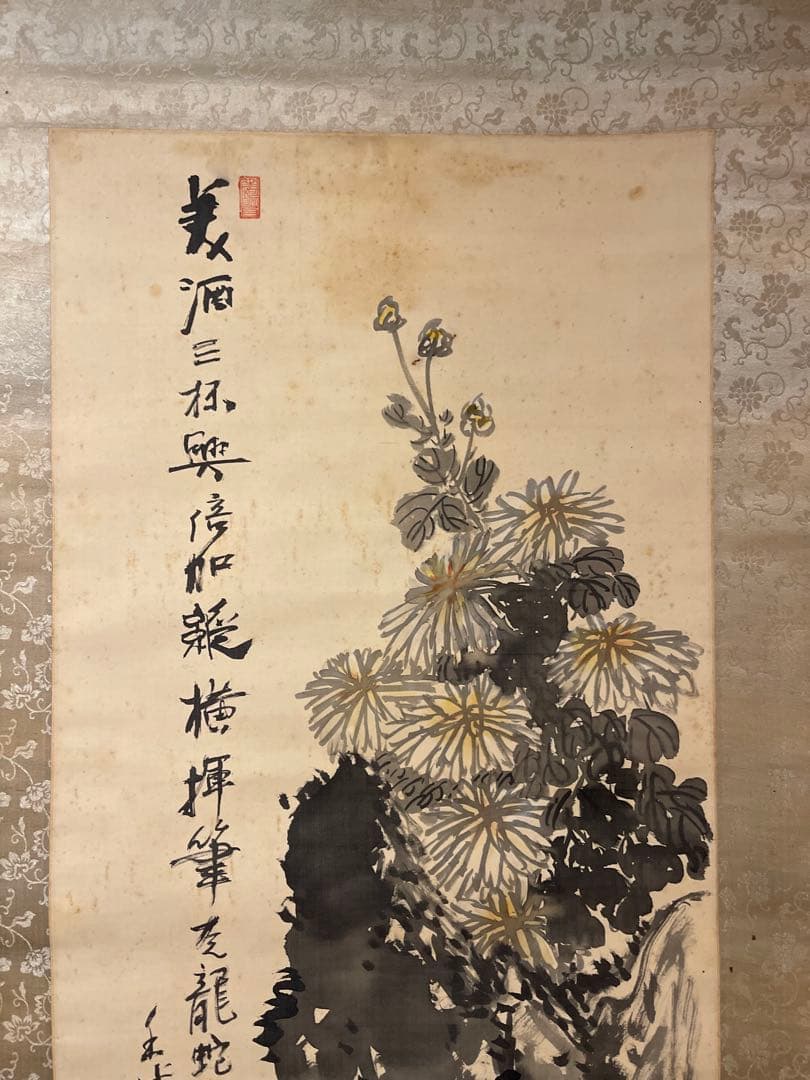 美酒三杯興倍加縱橫揮筆走龍蛇